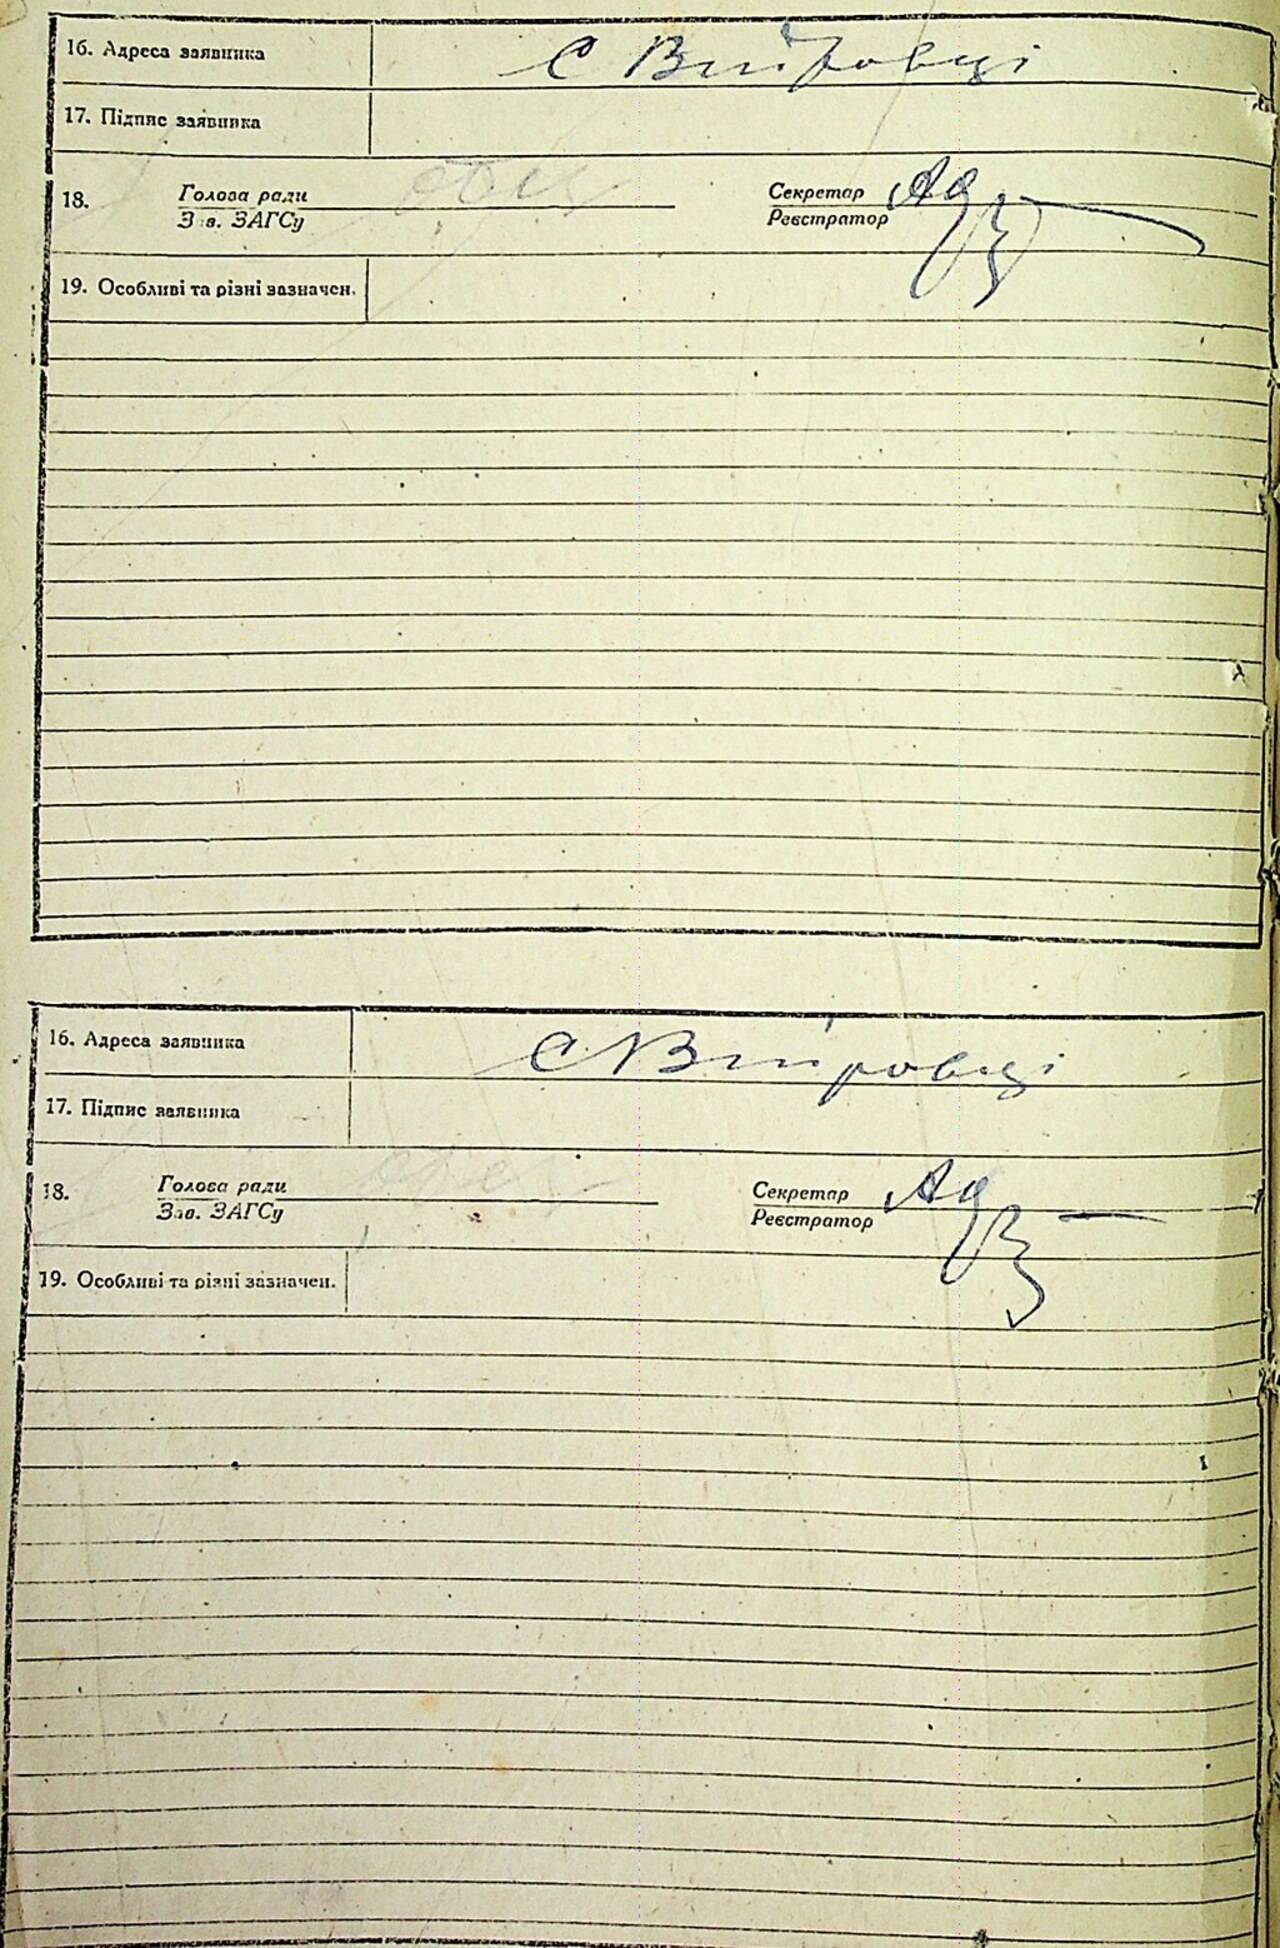 16. Адреса заявника
с Війтовці
17. Підпис заявника
18. Голова ради Секретар
Зав. ЗАГСу Реєстратор
19. Особливі та різні зазначен.
16. Адреса заявника
17. Підпис заявника
18. Голова ради Секретар
Зав. ЗАГСу Реєстратор
19. Особливі та різні зазначен.